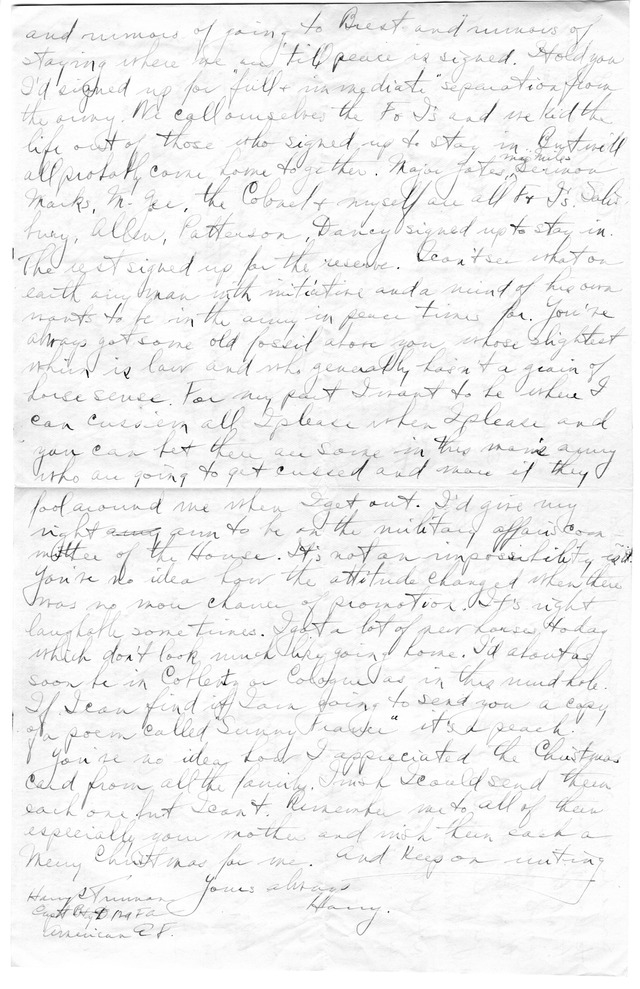 and rumors of going to Brest and rumors of
staying where we are till peace is signed. I told you
I'd signed up for "full & immediate" separation from
the army. We call ourselves the F& I's and we kid the
life out of those who signed up to stay in. But will
all probably come home together. Major Gates, Maj Miles, Sermon
Marks, McGee, the Colonel & myself are all F& I's. Salis
bury, Allen, Patterson, Dancy signed up to stay in.
The rest signed up for the reserve. I can't see what on
earth any man with initiative and a mind of his own
wants to be in the army in peace times for. You've
always got some old fossil above you whose slightest
whim is law and who generally hasn't a grain of
horse sense. For my part I want to be where I
can cuss 'em all I please when I please and
you can bet there are some in this man's army
who are going to get cussed and more if they
fool around me when I get out. I'd give my
right army arm to be on the military affairs com
mittee of the House. It's not an impossibility is it.
You've no idea how the attitude changed when there
was no more chance of promotion. It's right
laughable sometimes. I got a lot of new horses today
which don't look much like going home. I'd about as
soon be in Coblenz or Cologne as in this mud hole.
If I can find it I am going to send you a copy
of a poem called "Sunny France" it's a peach.
You've no idea how I appreciated the Christmas
card from all the family. I wish I could send them
each one but I can't. Remember me to all of them
especially your mother and wish them each a
Merry Christmas for me. And Keep on writing
Yours always
Harry.
Harry S Truman
Capt Bty D 129 FA
American E.F.